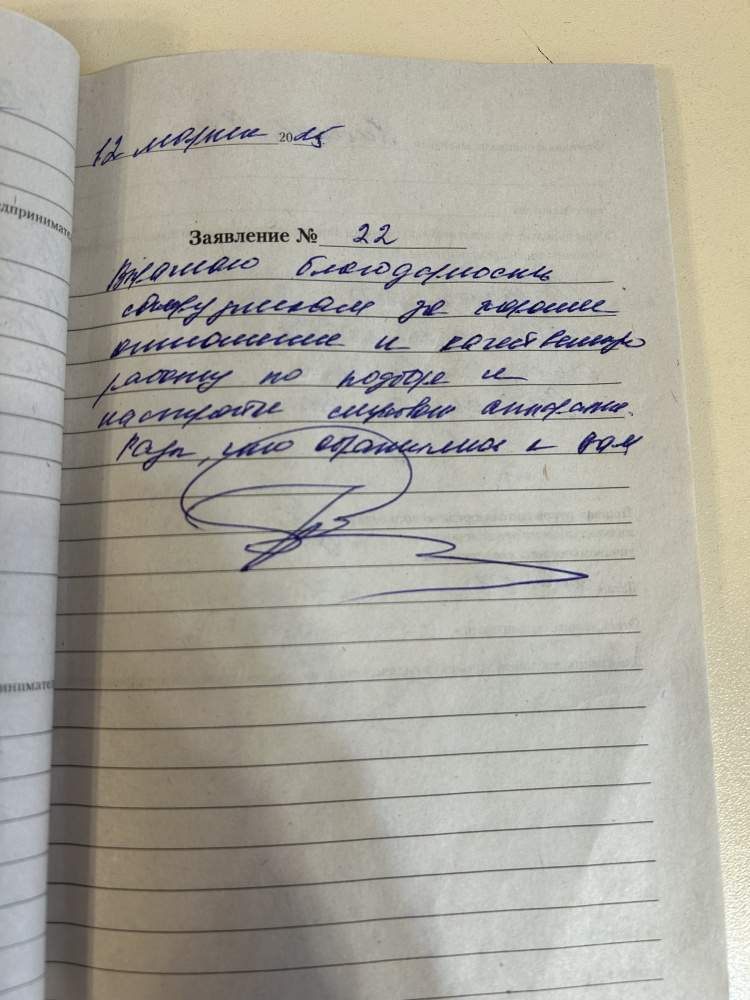 12 марта 2025
едпринимате
Заявление № 22
Выражаю благодарность
сотрудникам за хорошее
отношение и качественную
работу по подборе и
настройке слуховых аппаратов.
Рады, что обратились к вам
инимате